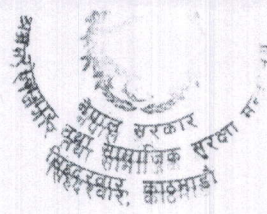 नेपाल सरकार
श्रम, रोजगार तथा सामाजिक सुरक्षा
सिंहदरबार, काठमाडौं